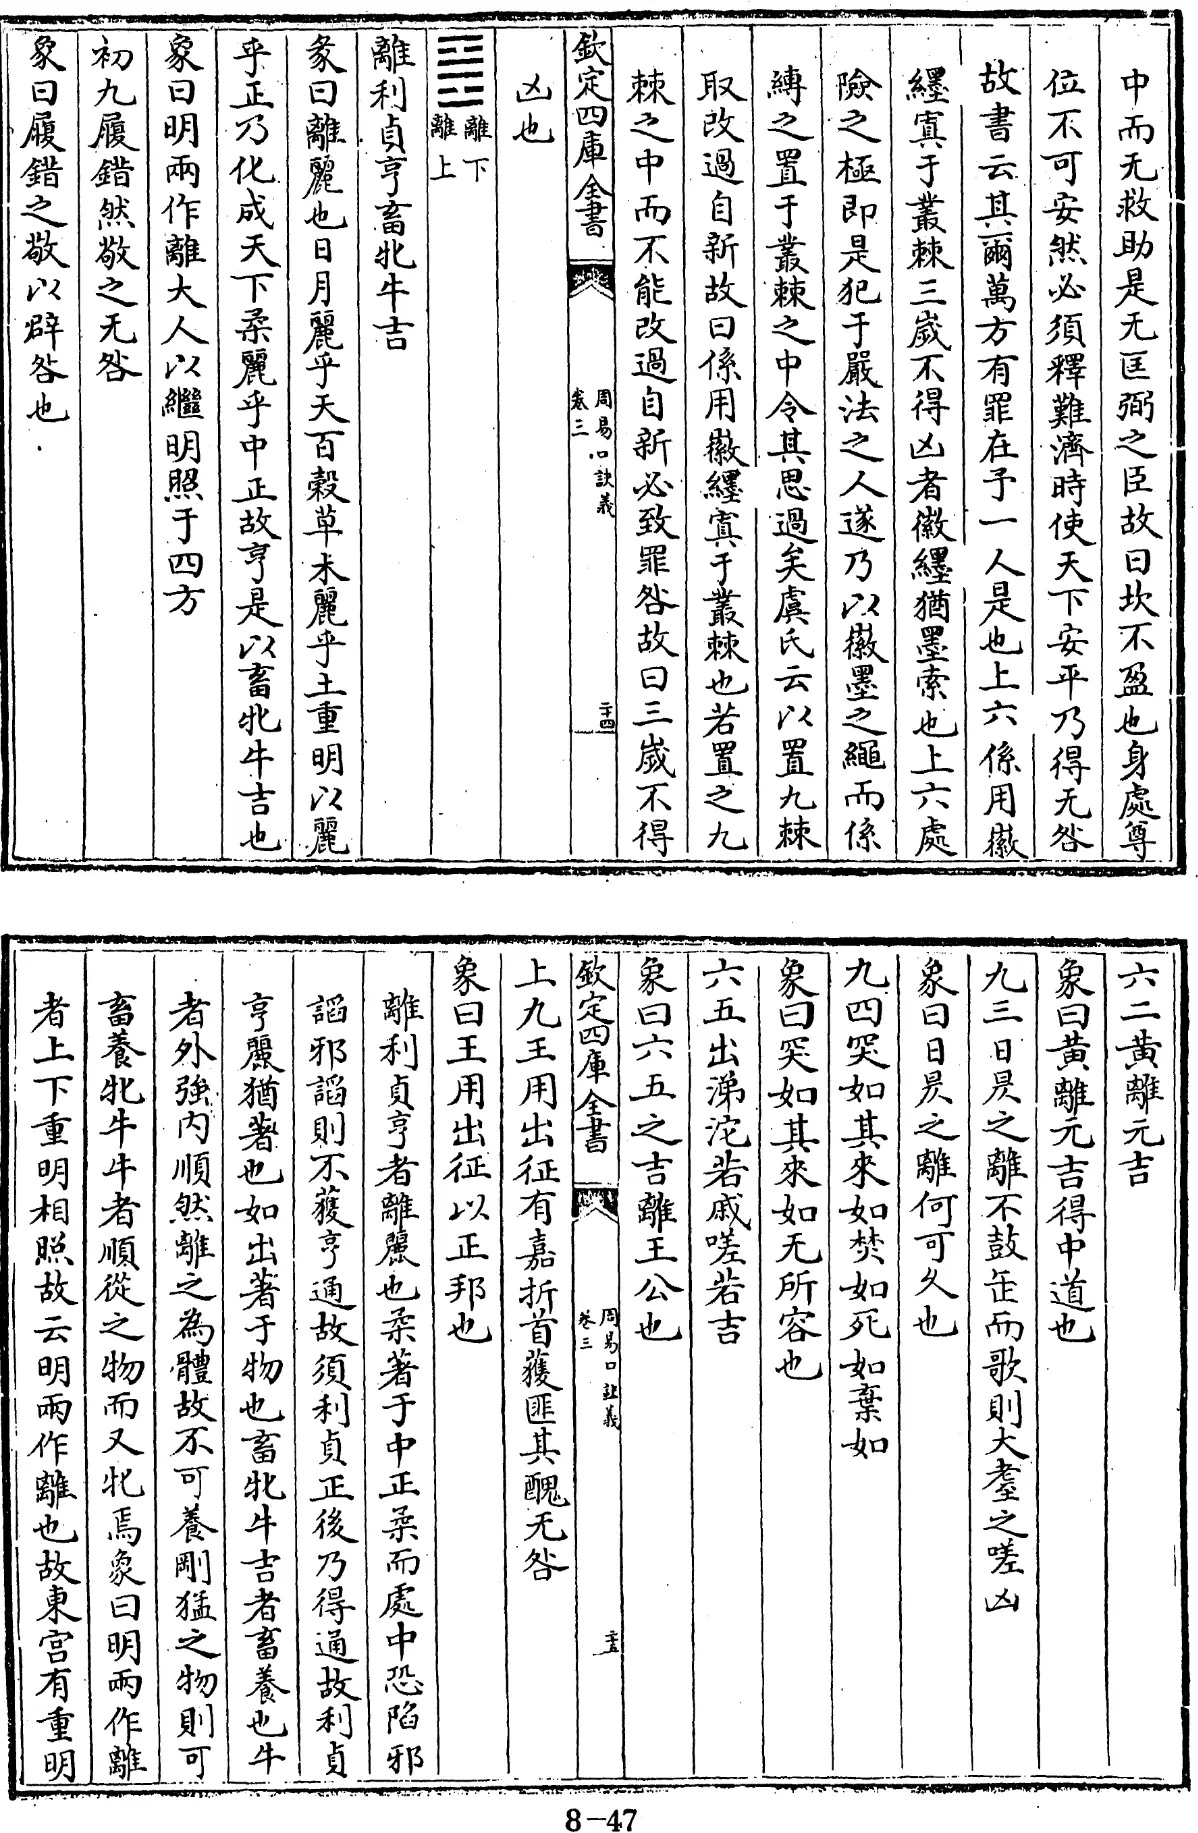 中而无救助是无匡弼之臣故曰坎不盈也身處尊
位不可安然必須釋難濟時使天下安平乃得无咎
故書云其爾萬方有罪在予一人是也上六係用徽
纆寘于叢棘三歲不得凶者徽纆猶墨索也上六處
險之極即是犯于嚴法之人遂乃以徽墨之繩而係
縛之置于叢棘之中令其思過矣虞氏云以置九棘
取改過自新故曰係用徽纆寘于叢棘也若置之九
棘之中而不能改過自新必致罪咎故曰三歲不得
欽定四庫全書
周易口訣義
卷三
二十四
凶也
離下
離上
離利貞亨畜牝牛吉
彖曰離麗也日月麗乎天百穀草木麗乎土重明以麗
乎正乃化成天下柔麗乎中正故亨是以畜牝牛吉也
象曰明兩作離大人以繼明照于四方
初九履錯然敬之无咎
象曰履錯之敬以辟咎也
六二黄離元吉
象曰黄離元吉得中道也
九三日昃之離不鼓缶而歌則大耋之嗟凶
象曰日昃之離何可久也
九四突如其來如焚如死如棄如
象曰突如其來如无所容也
六五出涕沱若戚嗟若吉
象曰六五之吉離王公也
欽定四庫全書
周易口訣義
卷三
二十五
上九王用出征有嘉折首獲匪其醜无咎
象曰王用出征以正邦也
離利貞亨者離麗也柔著于中正柔而處中恐陷邪
謟邪謟則不獲亨通故須利貞正後乃得通故利貞
亨麗猶著也如出著于物也畜牝牛吉者畜養也牛
者外強内順然離之為體故不可養剛猛之物則可
畜養牝牛牛者順從之物而又牝焉象曰明兩作離
者上下重明相照故云明兩作離也故東宫有重明
8-47